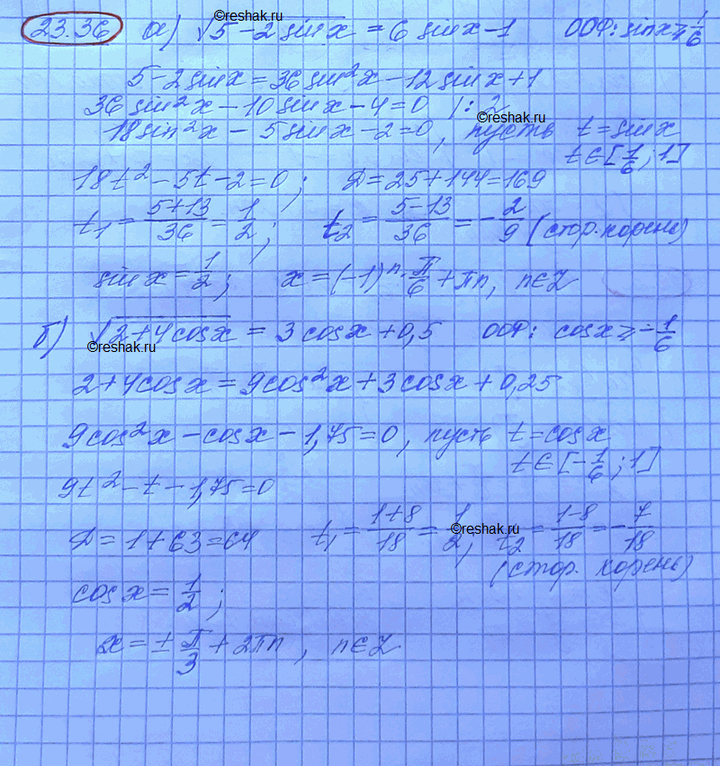 ©reshak.ru
23.36 а) √5-2sinx = 6sinx-1 ООФ: sinx ⩾ 1/6
5-2sinx=36sin²x-12sinx+1
36sin²x-10sinx-4=0 |:2
©reshak.ru
18sin²x-5sinx-2=0, пусть t=sinx
t∈[1/6;1]
18t²-5t-2=0; D=25+144=169
t₁=(5+13)/36=1/2; t₂=(5-13)/36=-2/9 (стор.корень)
sinx=1/2; x=(-1)ⁿ·π/6+πn, n∈Z
б) √2+4cosx = 3cosx+0,5 ООФ: cosx⩾-1/6
©reshak.ru
2+4cosx=9cos²x+3cosx+0,25
9cos²x-cosx-1,75=0, пусть t=cosx
t∈[-1/6;1]
9t²-t-1,75=0
D=1+63=64 t₁=(1+8)/18=1/2; t₂=(1-8)/18=-7/18
©reshak.ru
(стор. корень)
cosx=1/2;
x=±π/3+2πn, n∈Z